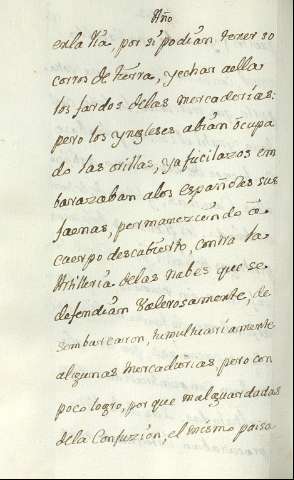 Año
en la Ria, por si podian tener so
corros de tierra, y echar a ella
los fardos delas mercaderias:
pero los yngleses abian ocupa
do las orillas, y a fucilazos em
barazaban alos españoles sus
faenas, permaneziendo â
cuerpo descubierto, contra la
Artilleria delas nabes que se
defendian Valerosamente, de
sembarcaron, tumultuariamente
algunas mercadurias pero con
poco logro, por que mal guardadas
dela Confuzion, el mismo paisa